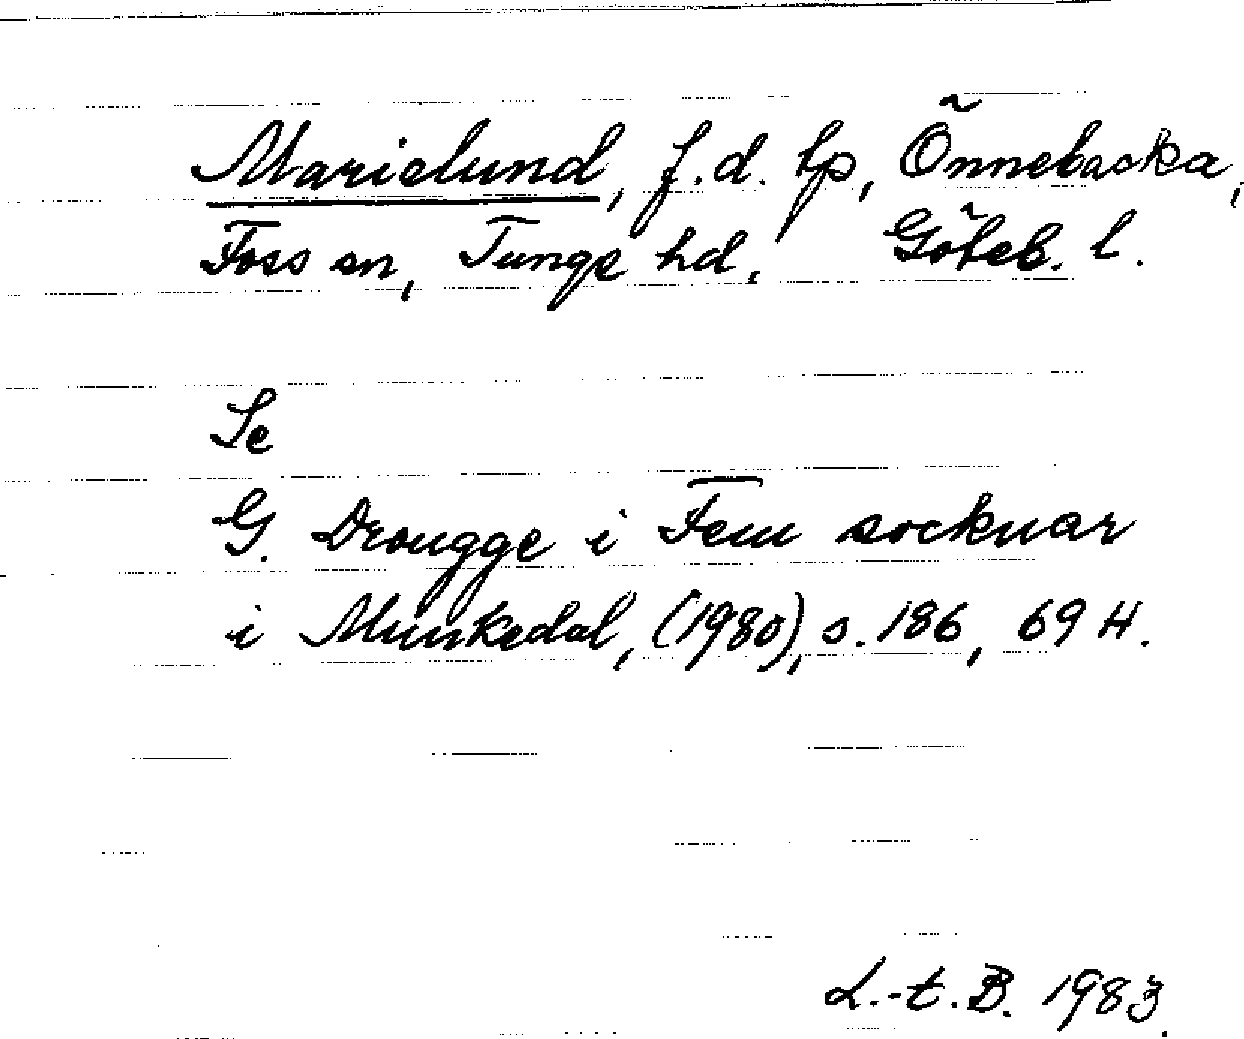 Marielund, f.d. tp, Önnebacka,
Foss sn, Tunge hd, Göteb. l.
Se
G. Drougge i Fem socknar
i Munkedal, (1980), s. 186, 69 H.
L.-t. B. 1983.